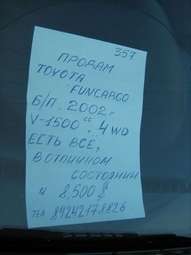 357
ПРОДАМ
TOYOTA
FUNCARGO
Б/П. 2002г
V-1500cc. 4WD
ЕСТЬ ВСЕ,
В ОТЛИЧНОМ
СОСТОЯНИИ
8,500$
ТЕЛ 89242178826